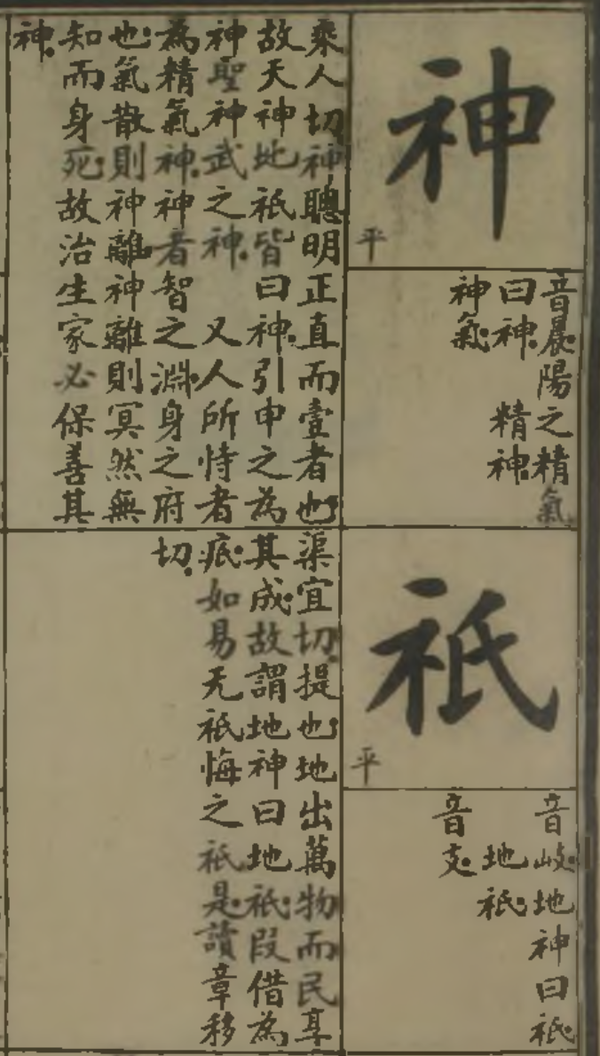 神
平
音晨陽之精氣
曰神 精神
神氣
乘人切神聰明正直而壹者也
故天神地祇皆曰神引申之為
神聖神武之神 又人所恃者
為精氣神神者智之淵身之府
也氣散則神離神離則冥然無
知而身死故治生家必保善其
神
祇
平
音岐地神曰祇
地祇
音支
渠宜切提也地出萬物而民享
其成故謂地神曰地祇叚借為
疧如易无祇悔之祇是讀章移
切